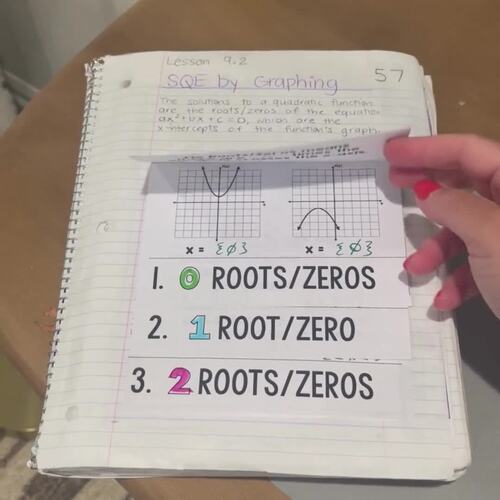 Lesson 9.2
57
SQE by Graphing
The solutions to a quadratic function
are the roots/zeros of the equation
ax²+bx+c=0, which are the
x-intercepts of the function's graph.
x = {∅} x = {∅}
1. 0 ROOTS/ZEROS
2. 1 ROOT/ZERO
3. 2 ROOTS/ZEROS